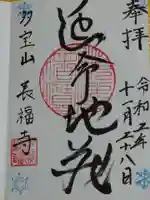 奉拝
令和二年
十一月二十八日
延命地蔵
多宝山
長福寺